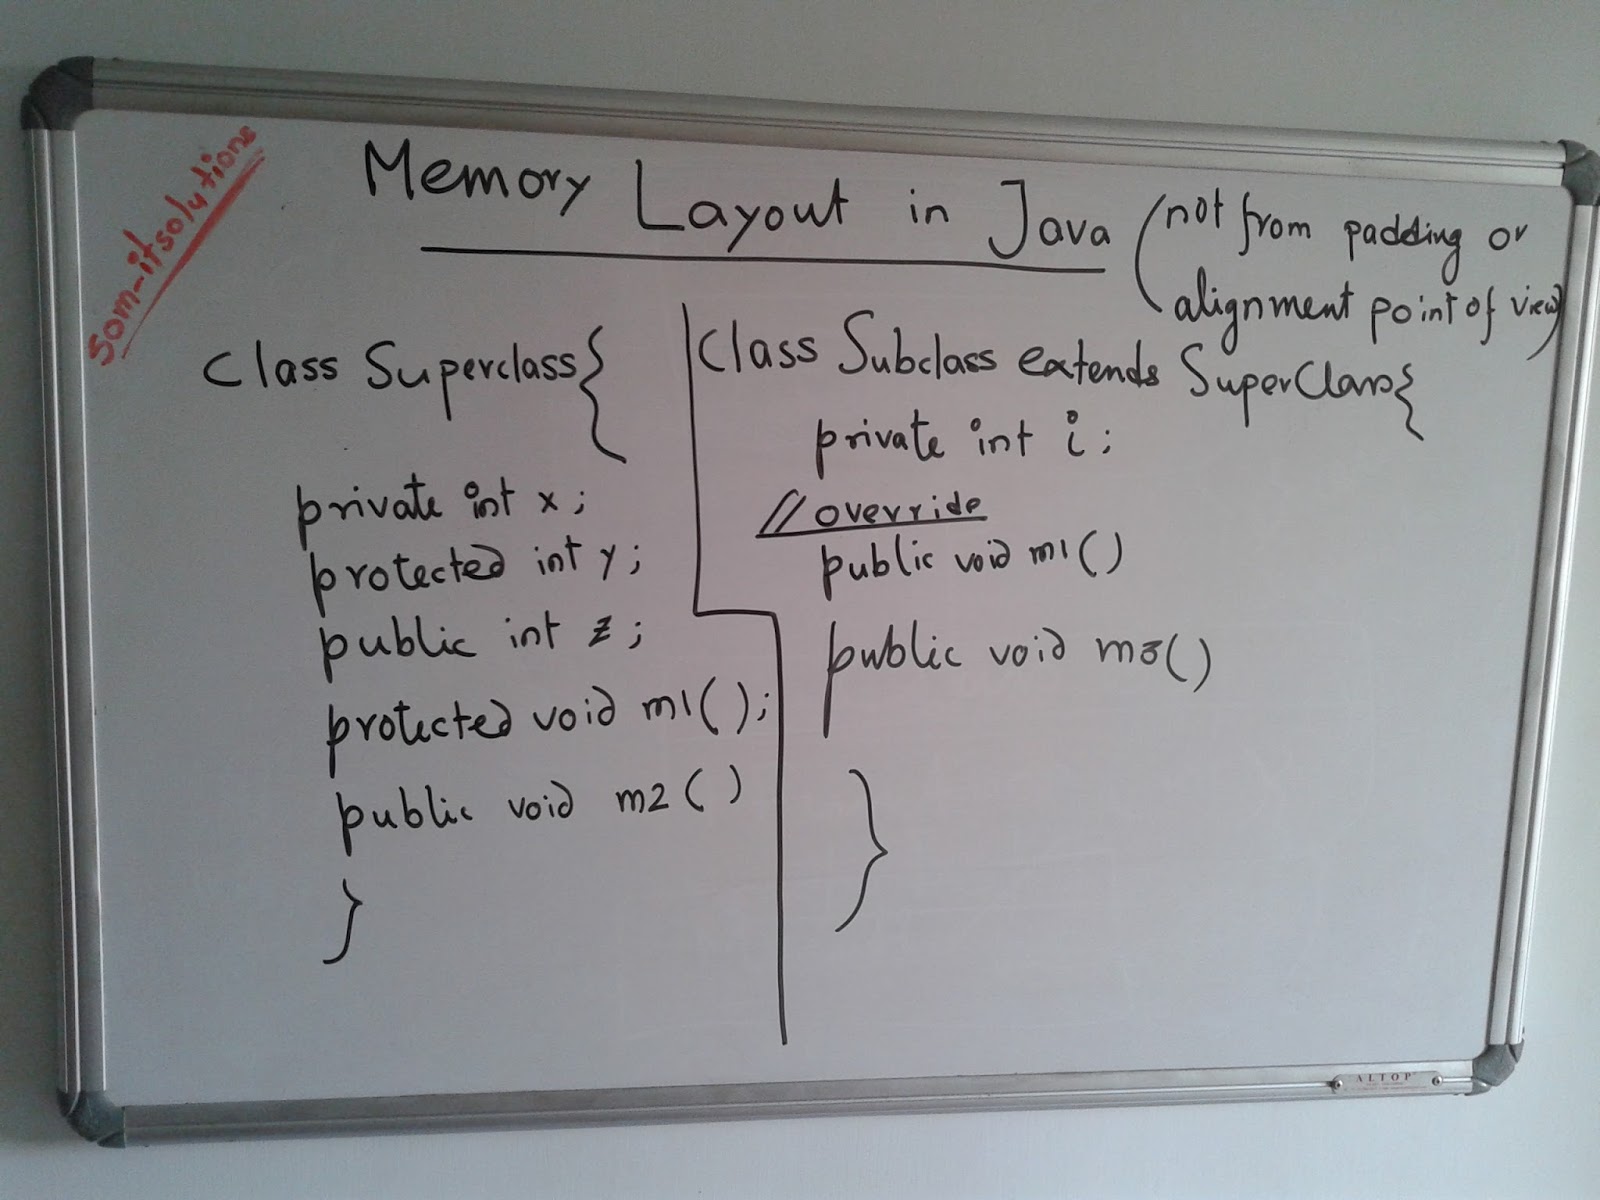 som-itsolutions
Memory Layout in Java (not from padding or
alignment point of view)
Class Superclass{
private int x;
protected int y;
public int z;
protected void m1();
public void m2()
}
Class Subclass extends SuperClass{
private int i;
//override
public void m1()
public void m3()
}
ALTOP